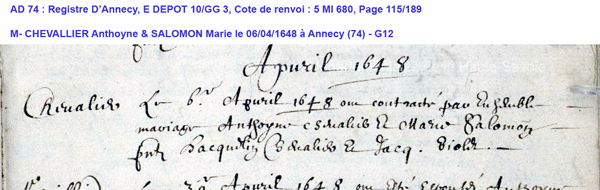 AD 74 : Registre D'Annecy, E DEPOT 10/GG 3, Cote de renvoi : 5 MI 680, Page 115/189
M- CHEVALLIER Anthoyne & SALOMON Marie le 06/04/1648 à Annecy (74) - G12
Apuril 1648
Chevalier Le 6.e Apuril 1648 ont contracté par Ensemble
mariage Anthoyne Chevalier Et Marie Salomon
Jacquelin Chevalier Et Jacq.
Apuril 1648 ont Esté Anthoyne